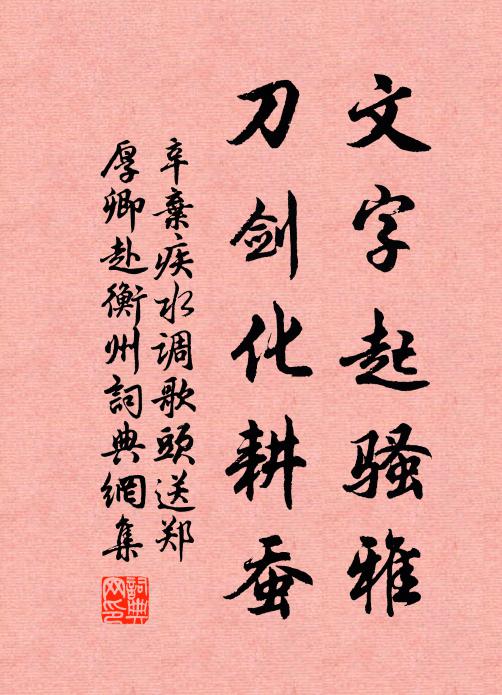 文字起骚雅
刀剑化耕蚕
辛棄疾水调歌頭送郑
厚卿赴衡州詞典網集
詞典
网印